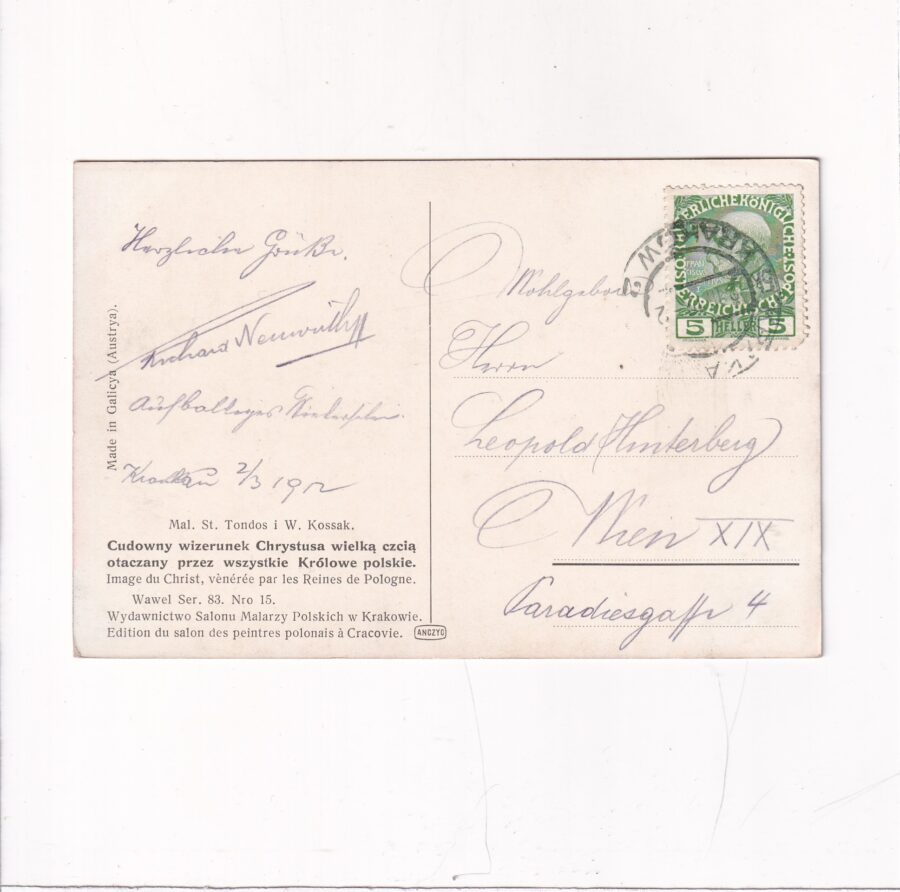 Herzliche Grüße.
Richard Neuwirth
Auf baldiges Wiedersehn.
Krakau 2/3 1912
Made in Galicya (Austrya).
Mal. St. Tondos i W. Kossak.
Cudowny wizerunek Chrystusa wielką czcią
otaczany przez wszystkie Królowe polskie.
Image du Christ, vènérée par les Reines de Pologne.
Wawel Ser. 83. Nro 15.
Wydawnictwo Salonu Malarzy Polskich w Krakowie.
Edition du salon des peintres polonais à Cracovie.
ANCZYC
KAISERLICHEKÖNIGLICHE
ÖSTERREICHISCHE
POST
5 HELLER 5
KRAKÓW 2
Wohlgebor
Herrn
Leopold Hinterberg
Wien XIX
Paradiesgasse 4